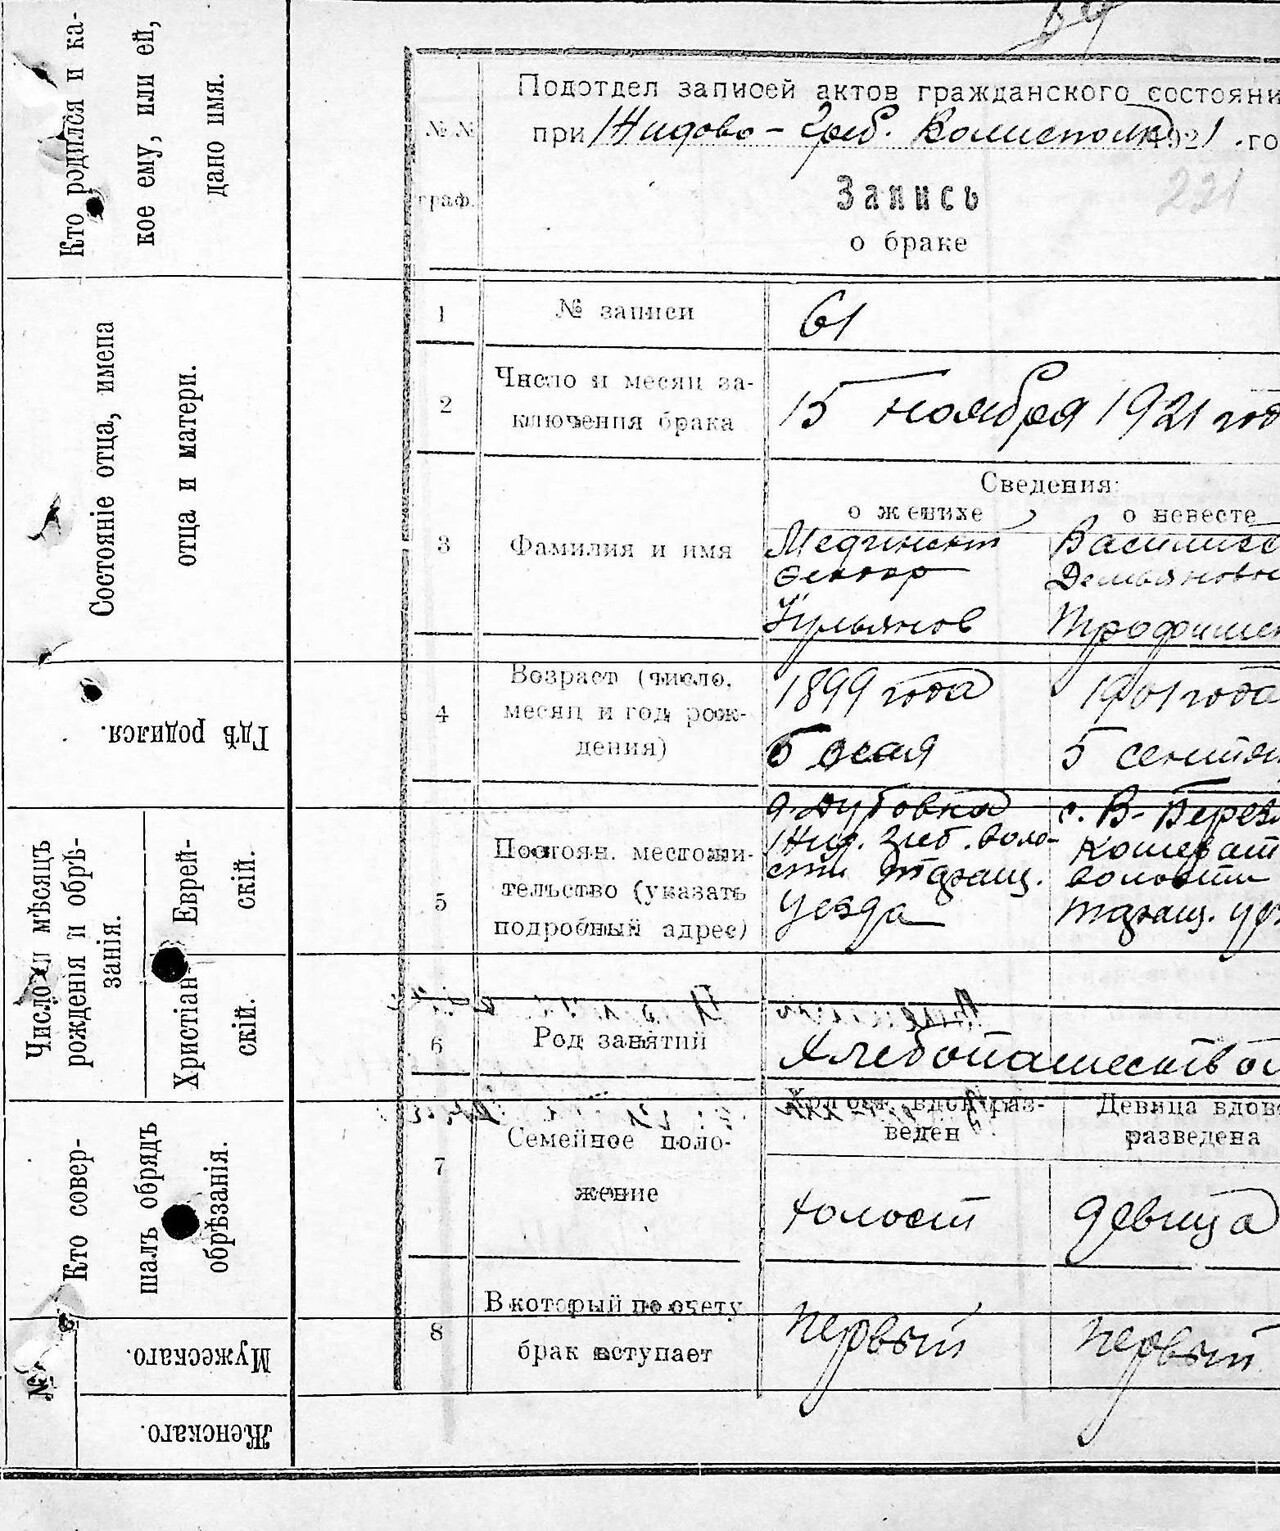 Кто родился и ка-
кое ему, или ей,
дано имя.
Состояніе отца, имена
отца и матери.
Гдѣ родился.
Число и мѣсяцъ
рожденія и обрѣ-
занія.
Еврей-
скій.
Христіан
скій.
Кто совер-
шалъ обрядъ
обрѣзанія.
Мужескаго.
Женскаго.
№
Подотдел записей актов гражданского состояни
при Жидово-Греб. 1921 .го
№№
граф.
Запись
о браке
221
1
№ записи
61
2
Число и месяц за-
ключения брака
15 ноября 1921 год
Сведения:
о женихе
о невесте
3
Фамилия и имя
Василисс
Демьяновн
Ульянов
Трофимен
4
Возраст (число,
месяц и год рож-
дения)
1899 года
1901 года
5 мая
5 сентяб
5
Постоян. местожи-
тельство (указать
подробный адрес)
д. Дубовка
Жид. Греб. воло-
сти Таращ.
Уезда
с. В-Берез
волости
Таращ. у
6
Род занятий
Хлебопашество
7
Семейное поло-
жение
Холост, вдов, раз-
веден
Девица вдов
разведена
холост
девица
8
В который по счету
брак вступает
первый
первый